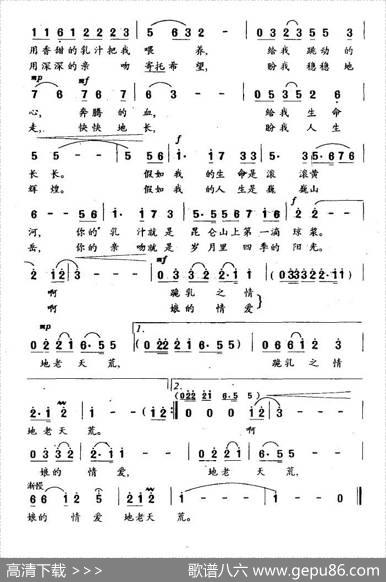 1 1 6 1 2 2 2 3 | 5 6 3 2 - | 0 3 2 3 5 5 |
用香甜的乳汁把我 喂 养, 给我 跳动 的
用深深的亲 吻 寄托希 望, 盼我 稳稳 地
mp mf
7 6 7 6 7 | 6 3 - | 0 3 5 3 2 6 |
心, 奔腾 的 血, 给我 生命
走, 快快 地 长, 盼我 人生
f
5 5 - | 5 5 6 | 1· 1 7 | 3 3 5 3 | 3·5 6 7 6
长 长。 假如 我 的 生 命是 滚 滚黄
辉 煌。 假如 我 的 人生 是 巍 巍山
f
6 - 5 6 | 1· 1 7 3 | 5·5 5 6 7 | 5 6 1 6 | 2 2 - |
河, 你的 乳 汁就 是 昆仑山上第一滴 琼 浆。
岳, 你的 亲 吻就 是 岁月里 四季的 阳 光。
mf
2 1 2 3 - | 0 3 3 3 2 2·1 1 | (0 3 3 3 3 2 2·1 1) |
啊 跪 乳 之 情
啊 娘 的 情 爱
mp 1.
0 2 2 2 1 6·5 5 | (0 2 2 2 1 6·5 5) | 0 6 6 6 1 1 2 |
地老 天 荒, 跪乳 之 情
2.
(0 2 2 2 1 6·5 5)
2·1 1 2 | 1 - - :‖ 0 0 0 1 2 | 3 - - |
地老天 荒。 啊
0 3 3 2 | 2·1 1 - | 0 2 2 2 1 | 6·5 5 - |
娘的 情 爱, 地老 天 荒,
渐慢
6 6 1 2 5 | 2·2 3 2 | 1 - - | 1 - 0 ‖
娘的 情 爱 地老天 荒。
高清下载 >>>
歌谱八六 www.gepu86.com